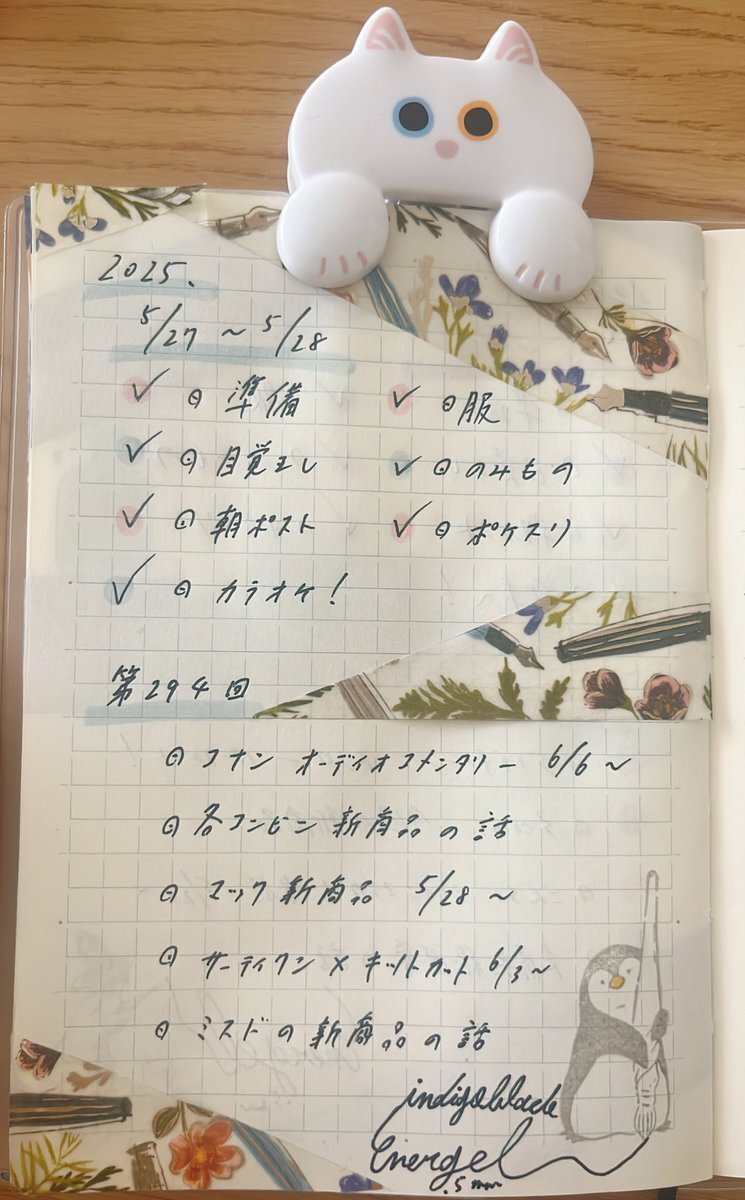 2025.
5/27 ~ 5/28
✓ ⊙ 準備 ✓ ⊙ 服
✓ ⊙ 目覚まし ✓ ⊙ のみもの
✓ ⊙ 朝ポスト ✓ ⊙ ポケスリ
✓ ⊙ カラオケ!
第294回
⊙ コナン オーディオコメンタリー 6/6~
⊙ 各コンビニ 新商品の話
⊙ マック 新商品 5/28~
⊙ サーティワン×キットカット 6/3~
⊙ ミスドの新商品の話
indigoblack
Energel
.5mm